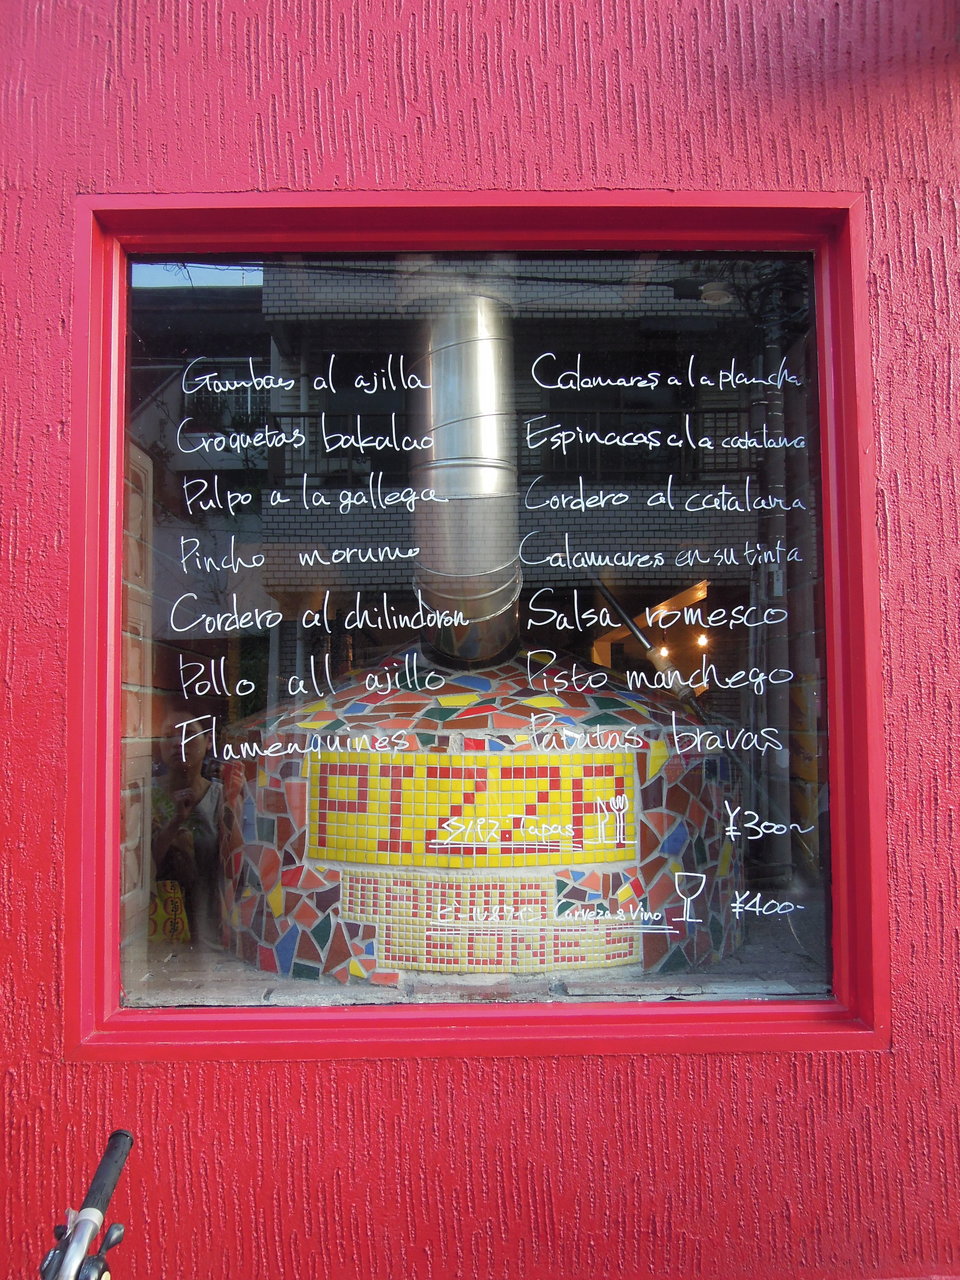 Gambas al ajilla
Croquetas bakalao
Pulpo a la gallega
Pincho morumo
Cordero al chilindoron
Pollo all ajillo
Flamenquines
Calamares a la plancha
Espinacas a la catalana
Cordero al catalana
Calamares en su tinta
Salsa romesco
Pisto manchego
Patatas bravas
PIZZA
タパス. Tapas ¥300~
ビール&ワイン Cerveza & Vino ¥400-